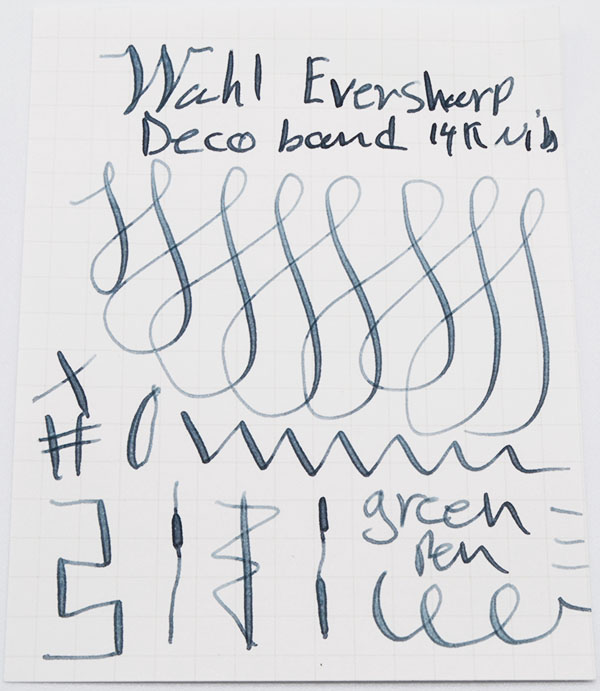 Wahl Eversharp
Deco band 14K nib
green
pen